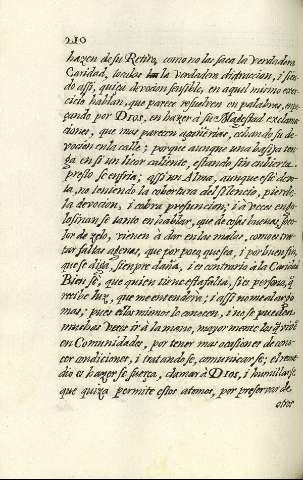 210
hazen de su Retiro, como no las saca la verdadera
Caridad, la verdadera distraccion, i sien
do assi, quiza devocion sensible, en aquel mismo exer
cicio hablan, que parece resuelven en palabras, em
çando por DIOS, en hazer a su Magestad exclama
ciones, que mas parecen agonias, echando su de
vocion en la calle; porque aunque una basixa ten
ga en si un licor caliente, estando sin cubierta
presto se enfria; assi un Alma, aunque esté den
ta, no teniendo la cobertura del silencio, pierde
la devocion, i cobra presuncion; i a veces
se tanto en hablar, que de cosas buenas, por
lor de zelo, vienen à dar en las malas, como es tra
tar faltas agenas, que por poco que sea, i por buen fin
que se diga, siempre daña, i es contrario à la Caridad
Bien sé, que quien tiene esta falta, si es persona, q̃
recibe luz, que me entenderà; i assi no me alargo
mas; pues ellas mismas lo conocen, i no se pueden
muchas vezes ir à la mano, mayormente las q̃ viven
en Comunidades, por tener mas ocasiones de cono
cer condiciones, i tratandose, comunicarse; el reme
dio es hazerse fuerça, clamar à DIOS, i humillarse
que quiza permite estos atomos, por preservar de
otros